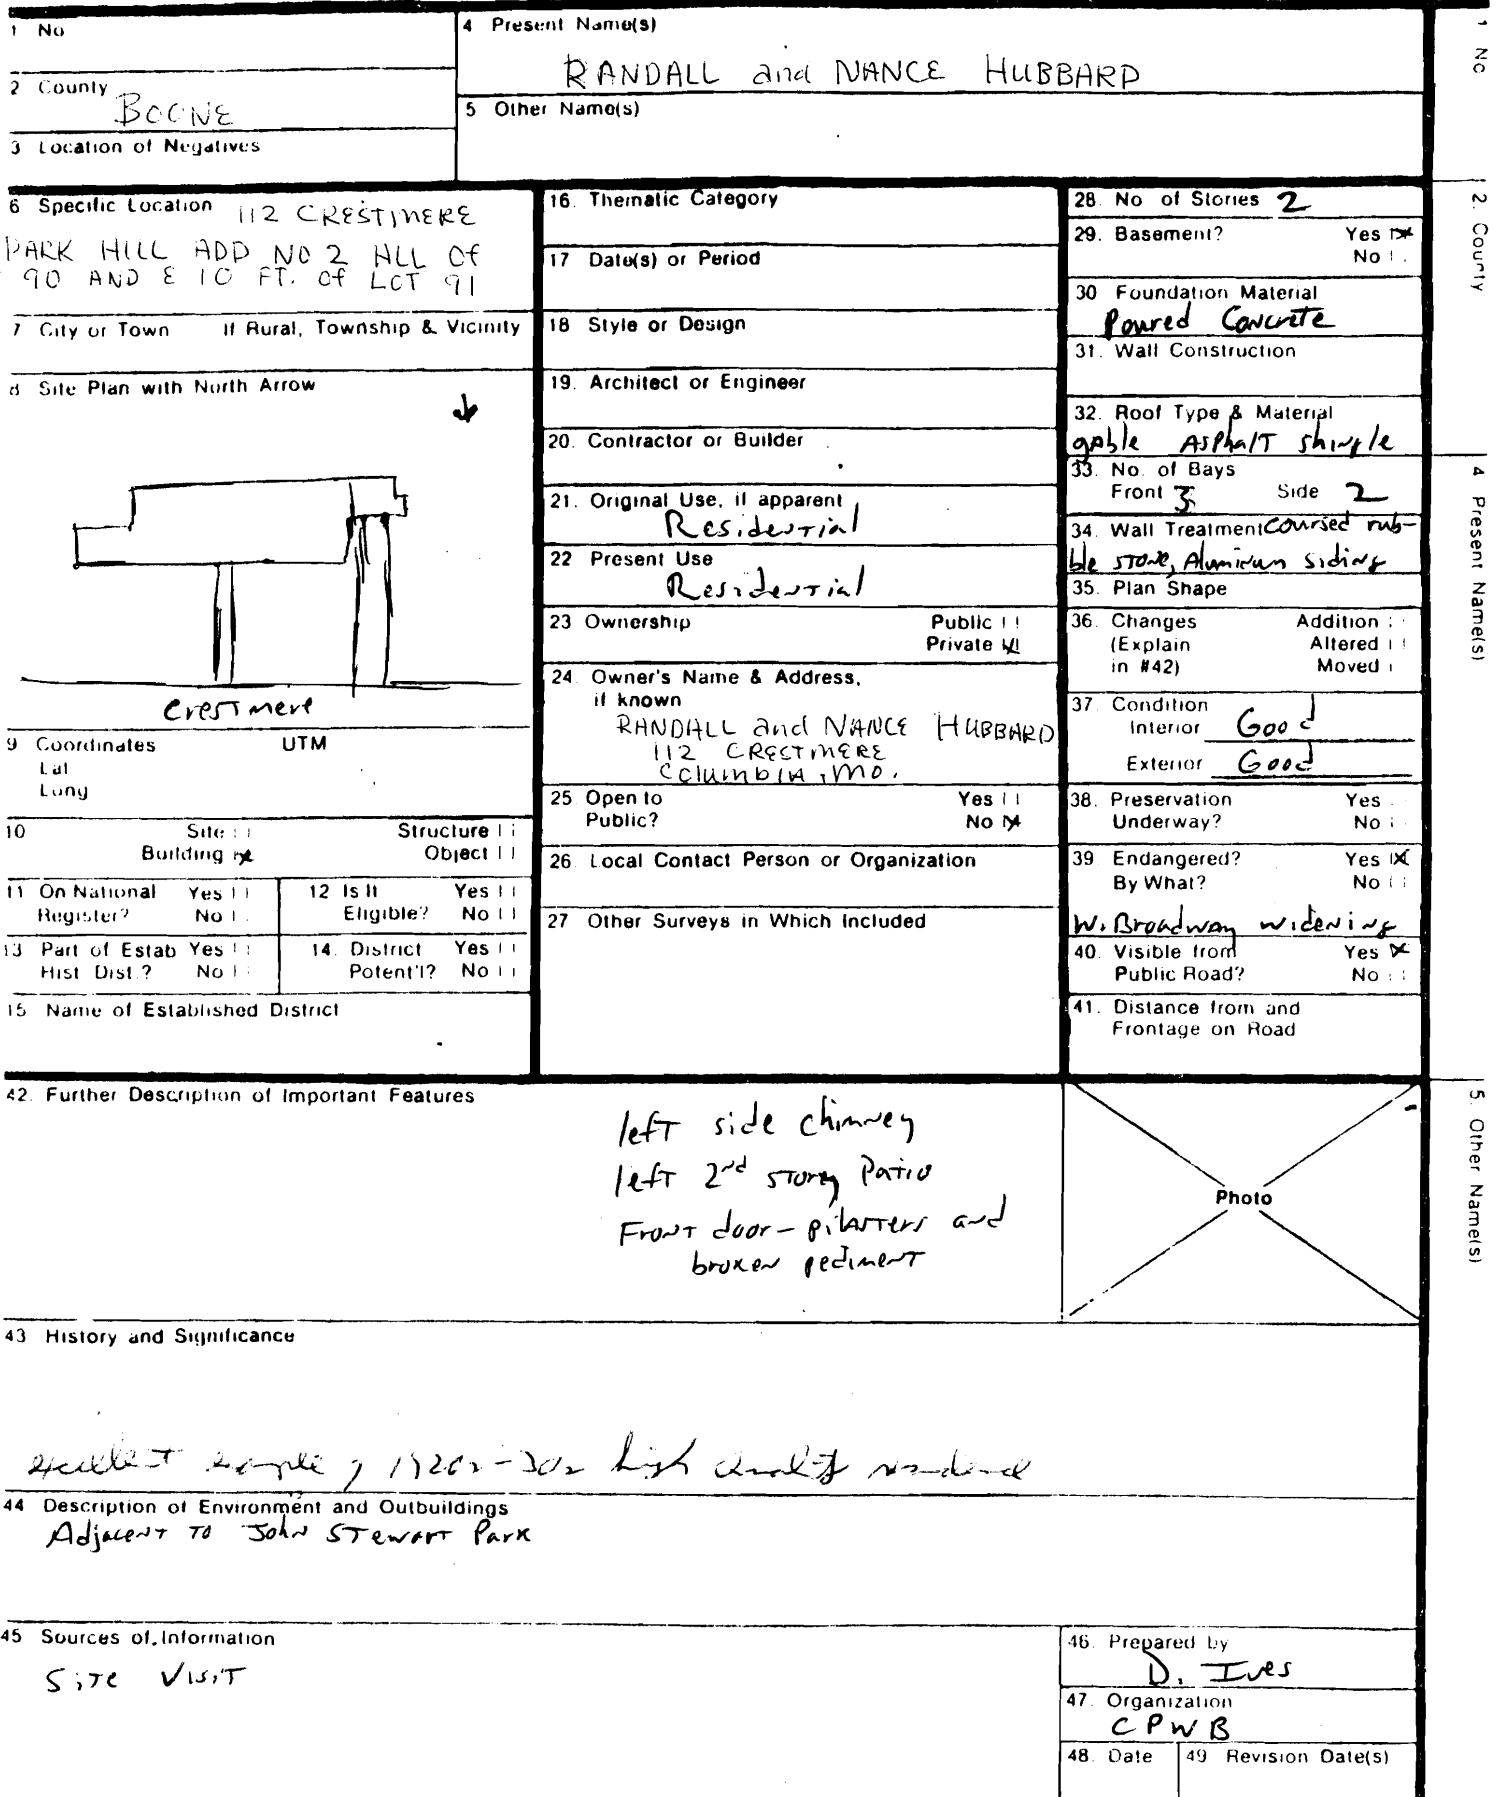 1 No
2 County
BOONE
3 Location of Negatives
4 Present Name(s)
RANDALL and NANCE HUBBARD
5 Other Name(s)
6 Specific Location 112 CRESTMERE
PARK HILL ADD NO 2 ALL Of
90 AND E 10 FT. Of LOT 91
7 City or Town If Rural, Township & Vicinity
8 Site Plan with North Arrow
Crestmere
9 Coordinates UTM
Lat
Long
10 Site Structure
Building Object
11 On National Register? Yes No
12 Is It Eligible? Yes No
13 Part of Estab Hist Dist.? Yes No
14. District Potent'l? Yes No
15 Name of Established District
16. Thematic Category
17 Date(s) or Period
18 Style or Design
19. Architect or Engineer
20. Contractor or Builder
21. Original Use, if apparent
Residential
22 Present Use
Residential
23 Ownership Public
Private
24 Owner's Name & Address,
if known
RANDALL and NANCE HUBBARD
112 CRESTMERE
COlumbIA, MO.
25 Open to Yes
Public? No
26. Local Contact Person or Organization
27 Other Surveys in Which Included
28. No of Stories 2
29. Basement? Yes
No
30 Foundation Material
Poured Concrete
31. Wall Construction
32. Roof Type & Material
gable Asphalt shingle
33. No. of Bays
Front 3 Side 2
34. Wall Treatment Coursed rub-
ble stone, Aluminum siding
35. Plan Shape
36. Changes Addition
(Explain Altered
in #42) Moved
37. Condition
Interior Good
Exterior Good
38. Preservation Yes
Underway? No
39 Endangered? Yes
By What? No
W. Broadway widening
40. Visible from Yes
Public Road? No
41. Distance from and
Frontage on Road
42. Further Description of Important Features
left side chimney
left 2nd story Patio
Front door - pilasters and
broken pediment
Photo
43 History and Significance
excellent example of 1920s-30s high quality
44 Description of Environment and Outbuildings
Adjacent to John Stewart Park
45 Sources of Information
Site Visit
46. Prepared by
D. Ives
47. Organization
CPWB
48. Date 49 Revision Date(s)
1 No
2. County
4 Present Name(s)
5. Other Name(s)